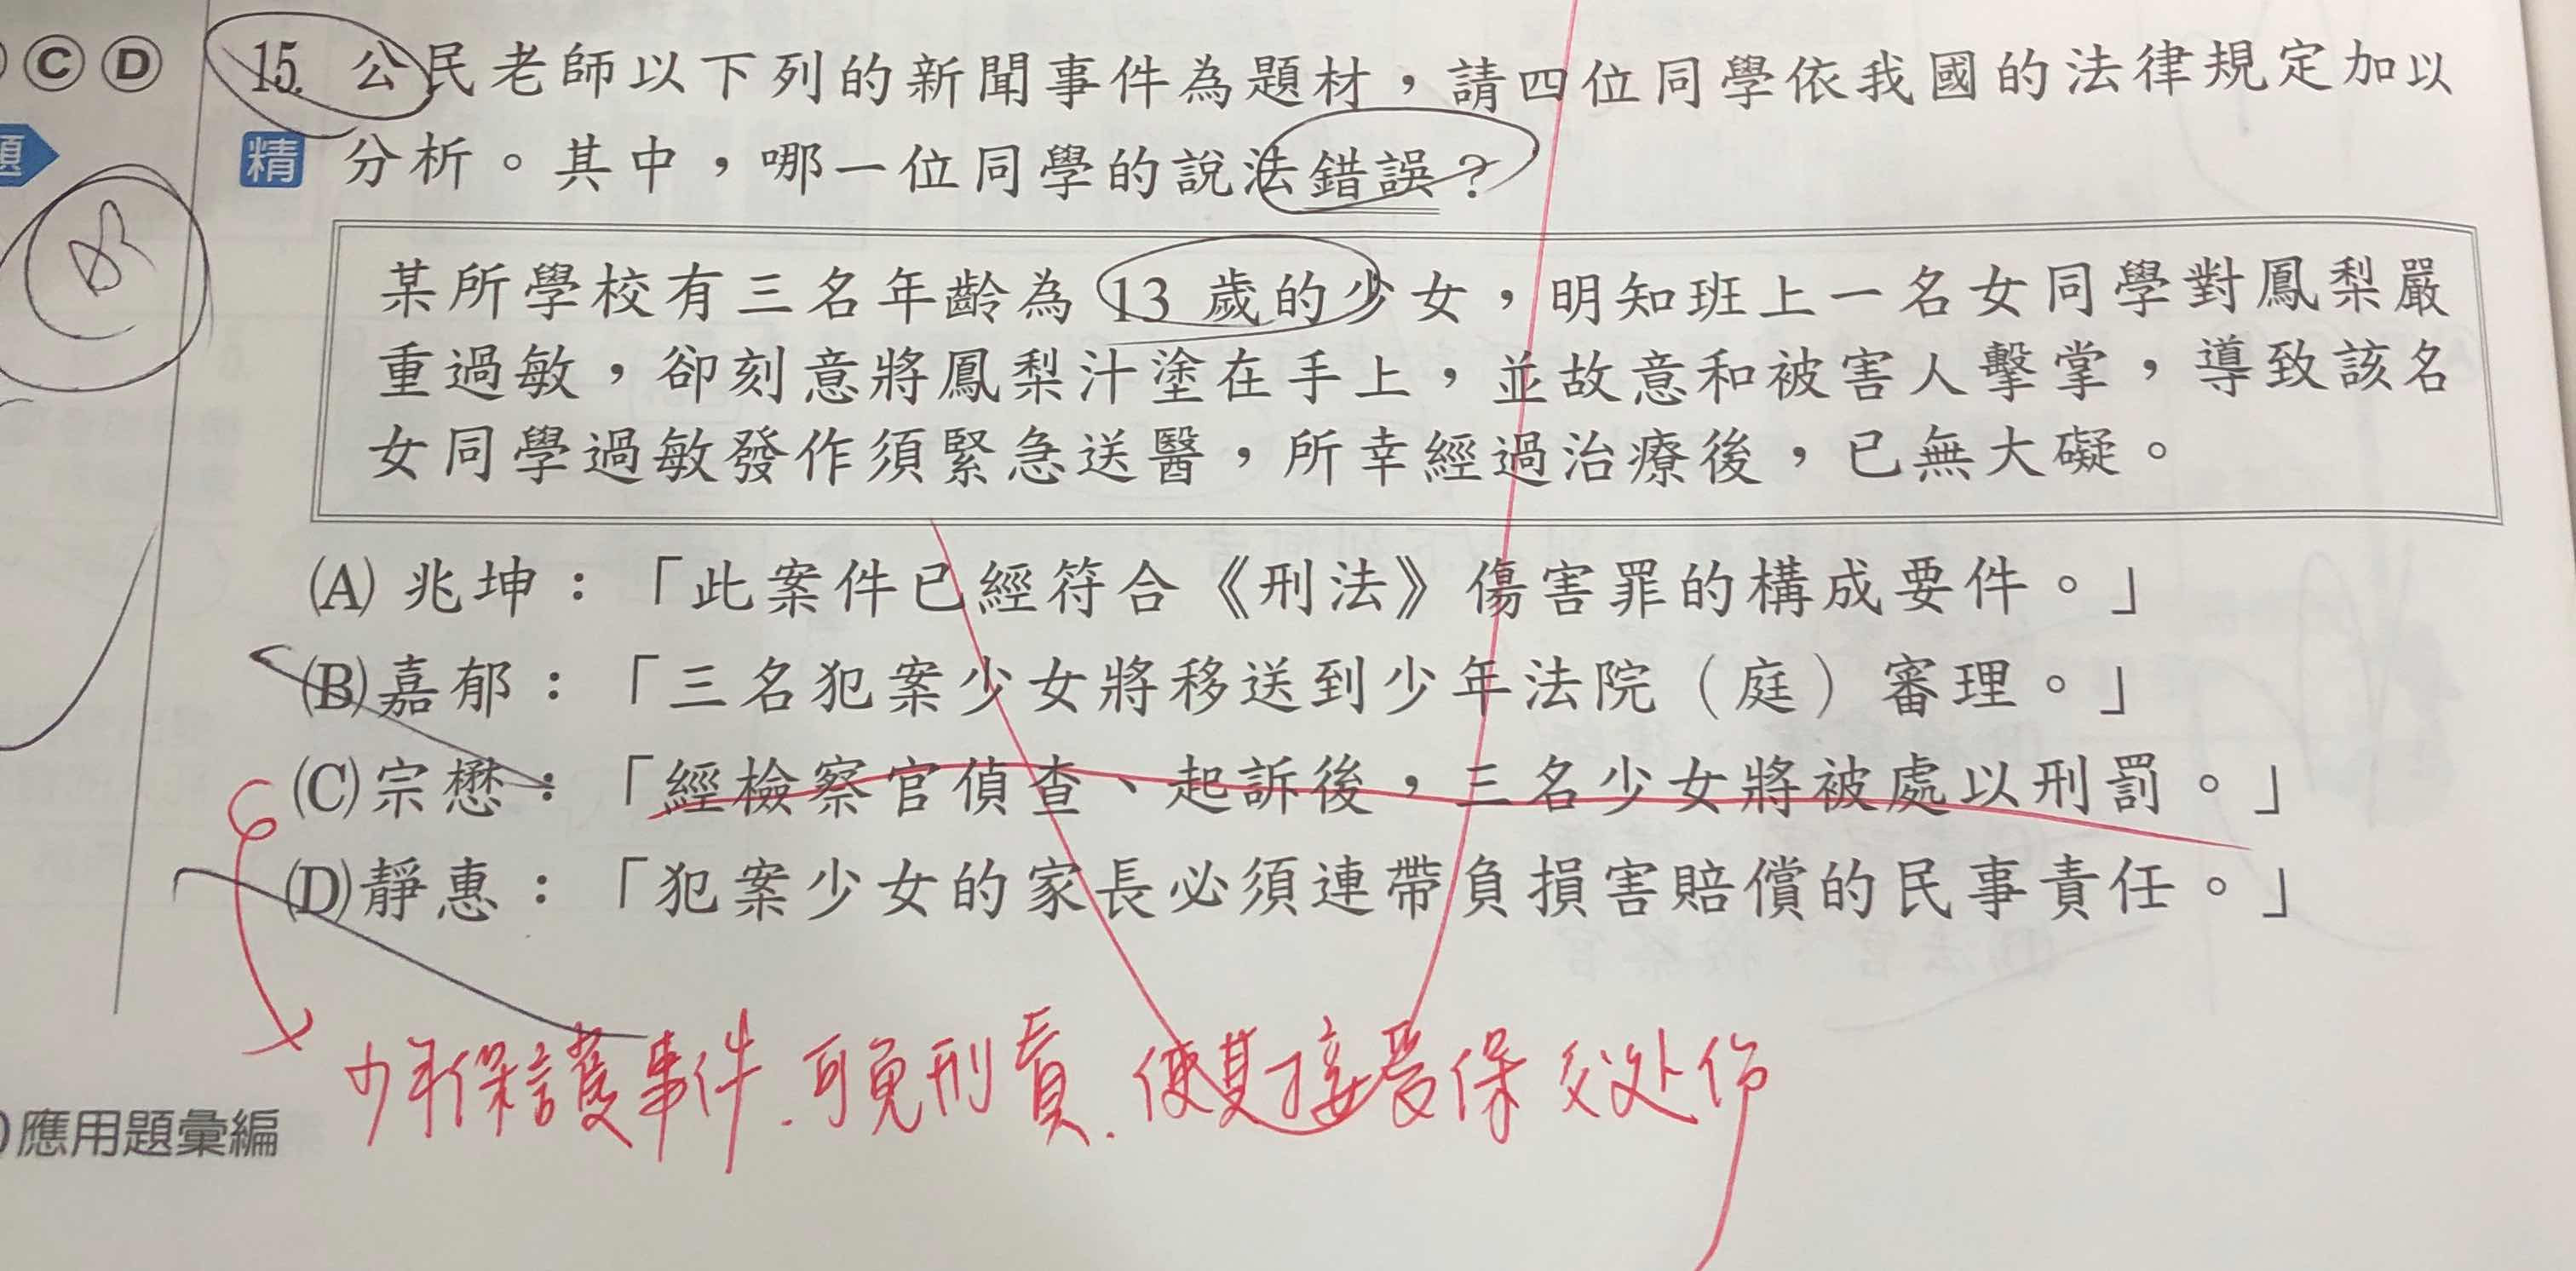 Ⓒ Ⓓ
題
15. 公民老師以下列的新聞事件為題材，請四位同學依我國的法律規定加以
精 分析。其中，哪一位同學的說法錯誤？
某所學校有三名年齡為 13 歲的少女，明知班上一名女同學對鳳梨嚴
重過敏，卻刻意將鳳梨汁塗在手上，並故意和被害人擊掌，導致該名
女同學過敏發作須緊急送醫，所幸經過治療後，已無大礙。
(A) 兆坤：「此案件已經符合《刑法》傷害罪的構成要件。」
(B) 嘉郁：「三名犯案少女將移送到少年法院（庭）審理。」
(C) 宗懋：「經檢察官偵查、起訴後，三名少女將被處以刑罰。」
(D) 靜惠：「犯案少女的家長必須連帶負損害賠償的民事責任。」
少年保護事件.可免刑責.使其接受保
應用題彙編